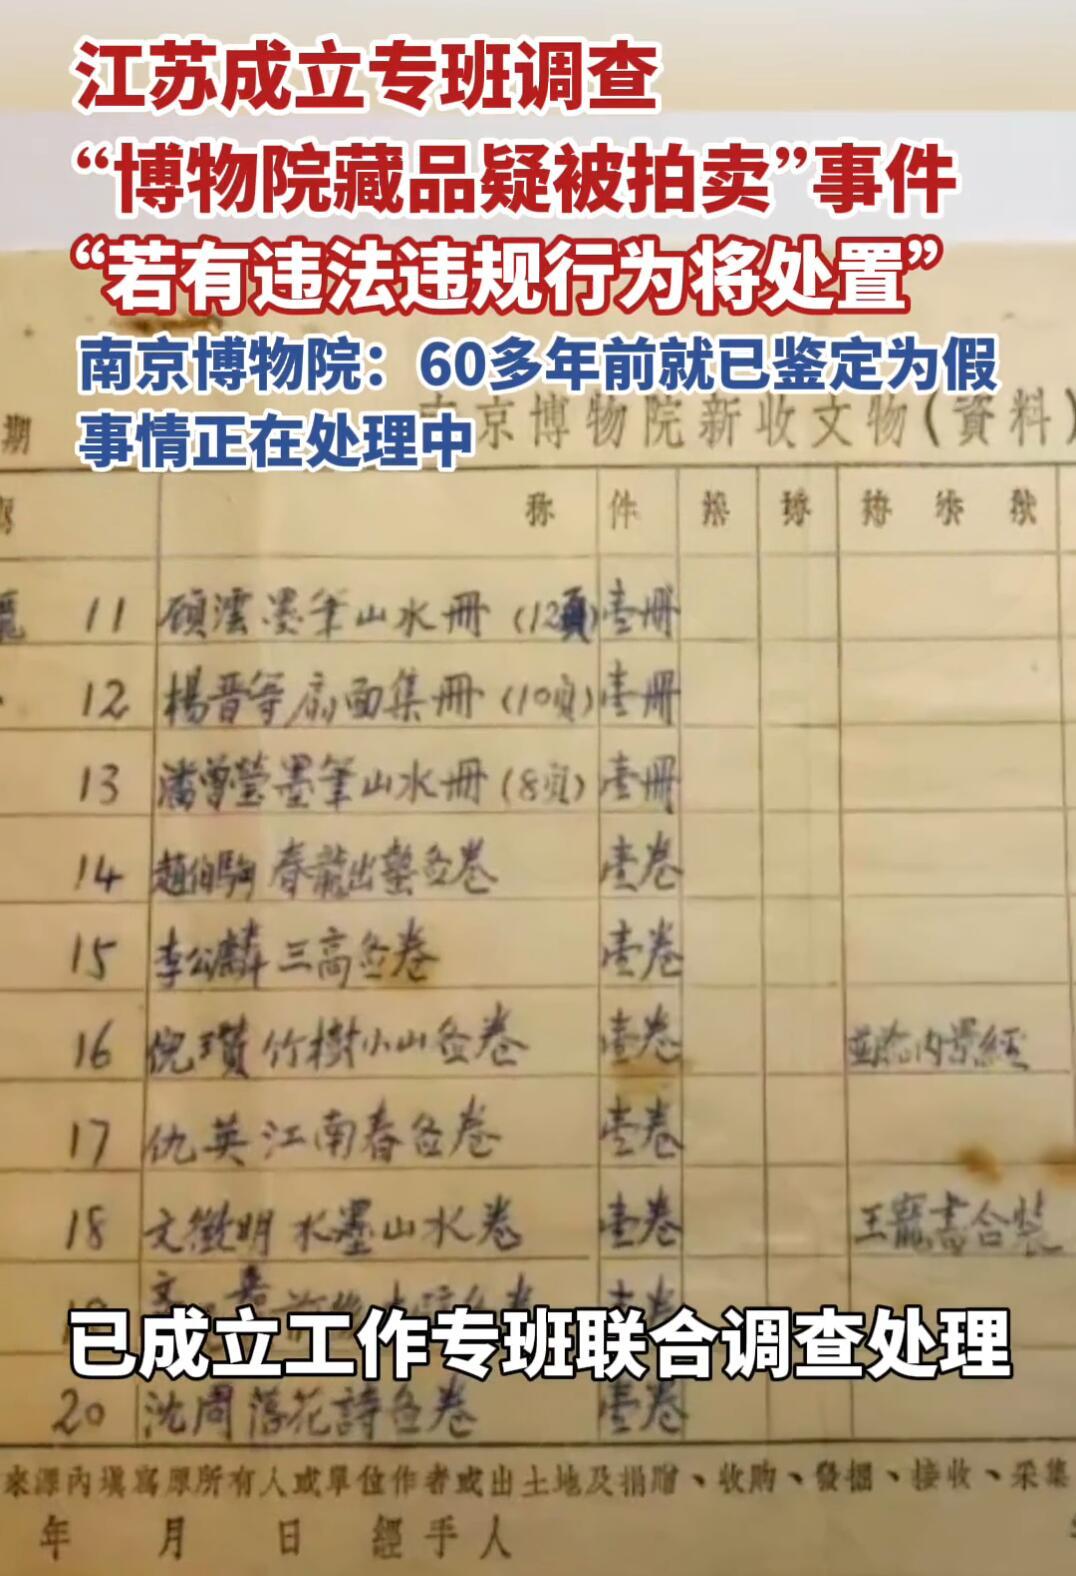 江苏成立专班调查
“博物院藏品疑被拍卖”事件
“若有违法违规行为将处置”
南京博物院：60多年前就已鉴定为假
事情正在处理中
期
京博物院新收文物(資料)
称 件
11 顾澐墨筆山水冊 (12頁) 壹冊
12 楊晋等扇面集冊 (10頁) 壹冊
13 潘曾瑩墨筆山水冊 (8頁) 壹冊
14 趙伯駒 春龍出蟄圖卷 壹卷
15 李公麟 三高圖卷 壹卷
16 倪瓚 竹樹小山圖卷 壹卷 内景經
17 仇英 江南春圖卷 壹卷
18 文徵明 水墨山水卷 壹卷 王寵書合裝
已成立工作专班联合调查处理
20 沈周 落花詩圖卷 壹卷
來源內填寫原所有人或單位作者或出土地及捐贈、收购、發掘、接收、采集
年 月 日 經手人